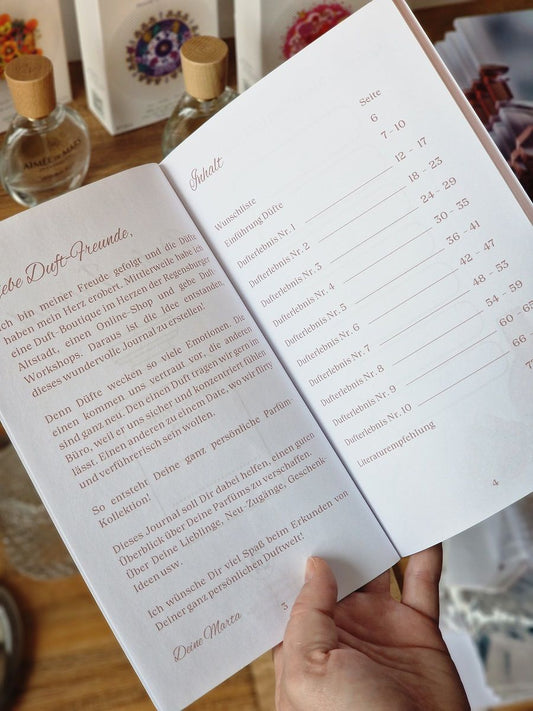 AIMÉE DE MARS
Liebe Duft-Freunde,
ich bin meiner Freude gefolgt und die Düfte
haben mein Herz erobert. Mittlerweile habe ich
eine Duft-Boutique im Herzen der Regensburger
Altstadt, einen Online-Shop und gebe Duft-
Workshops. Daraus ist die Idee entstanden,
dieses wundervolle Journal zu erstellen.
Denn Düfte wecken so viele Emotionen. Die
einen kommen uns vertraut vor, die anderen
sind ganz neu. Den einen Duft tragen wir gern im
Büro, weil er uns sicher und konzentriert fühlen
lässt. Einen anderen zu einem Date, wo wir flirty
und verführerisch sein wollen.
So entsteht Deine ganz persönliche Parfüm-
Kollektion!
Dieses Journal soll Dir dabei helfen, einen guten
Überblick über Deine Parfüms zu verschaffen.
Über Deine Lieblinge, Neu-Zugänge, Geschenk-
Ideen usw.
Ich wünsche Dir viel Spaß beim Erkunden von
Deiner ganz persönlichen Duftwelt!
Deine Marta
3
Inhalt
Seite
Wunschliste 6
Einführung Düfte 7-10
Dufterlebnis Nr. 1 12 - 17
Dufterlebnis Nr. 2 18 - 23
Dufterlebnis Nr. 3 24 - 29
Dufterlebnis Nr. 4 30 - 35
Dufterlebnis Nr. 5 36 - 41
Dufterlebnis Nr. 6 42 - 47
Dufterlebnis Nr. 7 48 - 53
Dufterlebnis Nr. 8 54 - 59
Dufterlebnis Nr. 9 60 -
Dufterlebnis Nr. 10 66 -
Literaturempfehlung
4